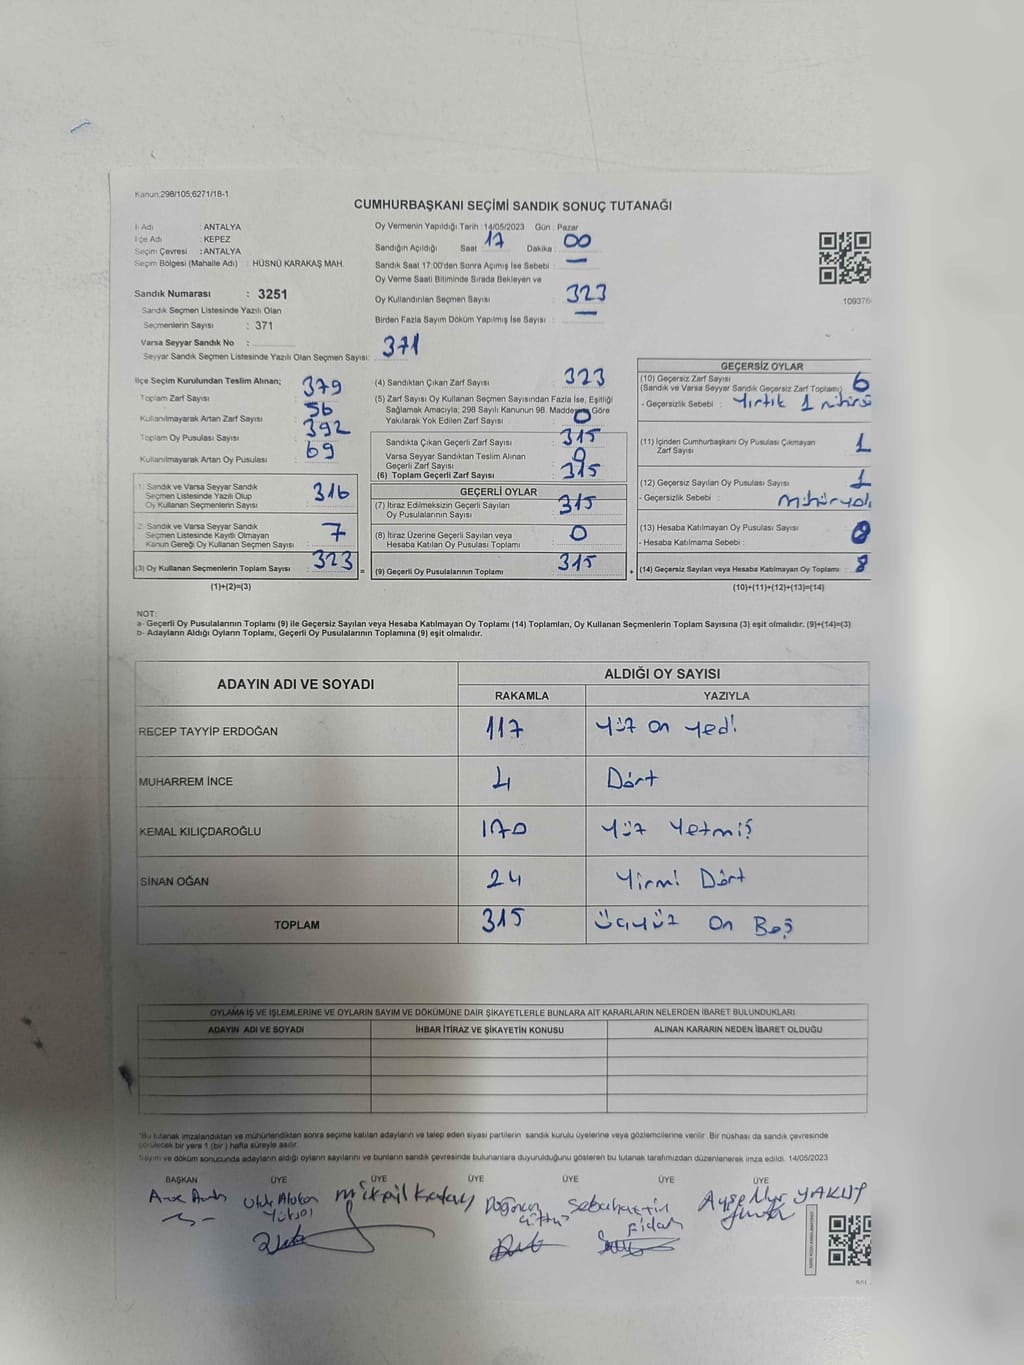 Kanun:298/105,6271/18-1
CUMHURBAŞKANI SEÇİMİ SANDIK SONUÇ TUTANAĞI
İl Adı : ANTALYA
İlçe Adı : KEPEZ
Seçim Çevresi : ANTALYA
Seçim Bölgesi (Mahalle Adı) : HÜSNÜ KARAKAŞ MAH.
Sandık Numarası : 3251
Sandık Seçmen Listesinde Yazılı Olan
Seçmenlerin Sayısı : 371
Varsa Seyyar Sandık No :
Seyyar Sandık Seçmen Listesinde Yazılı Olan Seçmen Sayısı: 371
Oy Vermenin Yapıldığı Tarih : 14/05/2023 Gün : Pazar
Sandığın Açıldığı Saat 17 Dakika : 00
Sandık Saat 17:00'den Sonra Açımış İse Sebebi : —
Oy Verme Saati Bitiminde Sırada Bekleyen ve
Oy Kullandırılan Seçmen Sayısı : 323
Birden Fazla Sayım Döküm Yapılmış İse Sayısı : —
109376
İlçe Seçim Kurulundan Teslim Alınan;
Toplam Zarf Sayısı : 379
Kullanılmayarak Artan Zarf Sayısı : 56
Toplam Oy Pusulası Sayısı : 392
Kullanılmayarak Artan Oy Pusulası : 69
1. Sandık ve Varsa Seyyar Sandık
Seçmen Listesinde Yazılı Olup
Oy Kullanan Seçmenlerin Sayısı : 316
2. Sandık ve Varsa Seyyar Sandık
Seçmen Listesinde Kayıtlı Olmayan
Kanun Gereği Oy Kullanan Seçmen Sayısı : 7
(3) Oy Kullanan Seçmenlerin Toplam Sayısı : 323
(1)+(2)=(3)
(4) Sandıktan Çıkan Zarf Sayısı : 323
(5) Zarf Sayısı Oy Kullanan Seçmen Sayısından Fazla İse, Eşitliği
Sağlamak Amacıyla; 298 Sayılı Kanunun 98. Maddesine Göre
Yakılarak Yok Edilen Zarf Sayısı : 0
Sandıkta Çıkan Geçerli Zarf Sayısı : 315
Varsa Seyyar Sandıktan Teslim Alınan
Geçerli Zarf Sayısı : 0
(6) Toplam Geçerli Zarf Sayısı : 315
GEÇERLİ OYLAR
(7) İtiraz Edilmeksizin Geçerli Sayılan
Oy Pusulalarının Sayısı : 315
(8) İtiraz Üzerine Geçerli Sayılan veya
Hesaba Katılan Oy Pusulası Toplamı : 0
= (9) Geçerli Oy Pusulalarının Toplamı : 315 +
GEÇERSİZ OYLAR
(10) Geçersiz Zarf Sayısı
(Sandık ve Varsa Seyyar Sandık Geçersiz Zarf Toplamı) : 6
- Geçersizlik Sebebi : Yırtık 1
(11) İçinden Cumhurbaşkanı Oy Pusulası Çıkmayan
Zarf Sayısı : 1
(12) Geçersiz Sayılan Oy Pusulası Sayısı : 1
- Geçersizlik Sebebi :
(13) Hesaba Katılmayan Oy Pusulası Sayısı : 0
- Hesaba Katılmama Sebebi :
(14) Geçersiz Sayılan veya Hesaba Katılmayan Oy Toplamı : 8
(10)+(11)+(12)+(13)=(14)
NOT:
a- Geçerli Oy Pusulalarının Toplamı (9) ile Geçersiz Sayılan veya Hesaba Katılmayan Oy Toplamı (14) Toplamları, Oy Kullanan Seçmenlerin Toplam Sayısına (3) eşit olmalıdır. (9)+(14)=(3)
b- Adayların Aldığı Oyların Toplamı, Geçerli Oy Pusulalarının Toplamına (9) eşit olmalıdır.
ADAYIN ADI VE SOYADI
ALDIĞI OY SAYISI
RAKAMLA YAZIYLA
RECEP TAYYİP ERDOĞAN 117 Yüz on yedi
MUHARREM İNCE 4 Dört
KEMAL KILIÇDAROĞLU 170 Yüz Yetmiş
SİNAN OĞAN 24 Yirmi Dört
TOPLAM 315 Üçyüz On Beş
OYLAMA İŞ VE İŞLEMLERİNE VE OYLARIN SAYIM VE DÖKÜMÜNE DAİR ŞİKAYETLERLE BUNLARA AİT KARARLARIN NELERDEN İBARET BULUNDUKLARI
ADAYIN ADI VE SOYADI İHBAR İTİRAZ VE ŞİKAYETİN KONUSU ALINAN KARARIN NEDEN İBARET OLDUĞU
*Bu tutanak imzalandıktan ve mühürlendikten sonra seçime katılan adayların ve talep eden siyasi partilerin sandık kurulu üyelerine veya gözlemcilerine verilir. Bir nüshası da sandık çevresinde
görülecek bir yere 1 (bir) hafta süreyle asılır.
Sayım ve döküm sonucunda adayların aldığı oyların sayılarını ve bunların sandık çevresinde bulunanlara duyurulduğunu gösteren bu tutanak tarafımızdan düzenlenerek imza edildi. 14/05/2023
BAŞKAN ÜYE ÜYE ÜYE ÜYE ÜYE ÜYE
Sebahattin
Fidan
Ayşe Nur YAKUT